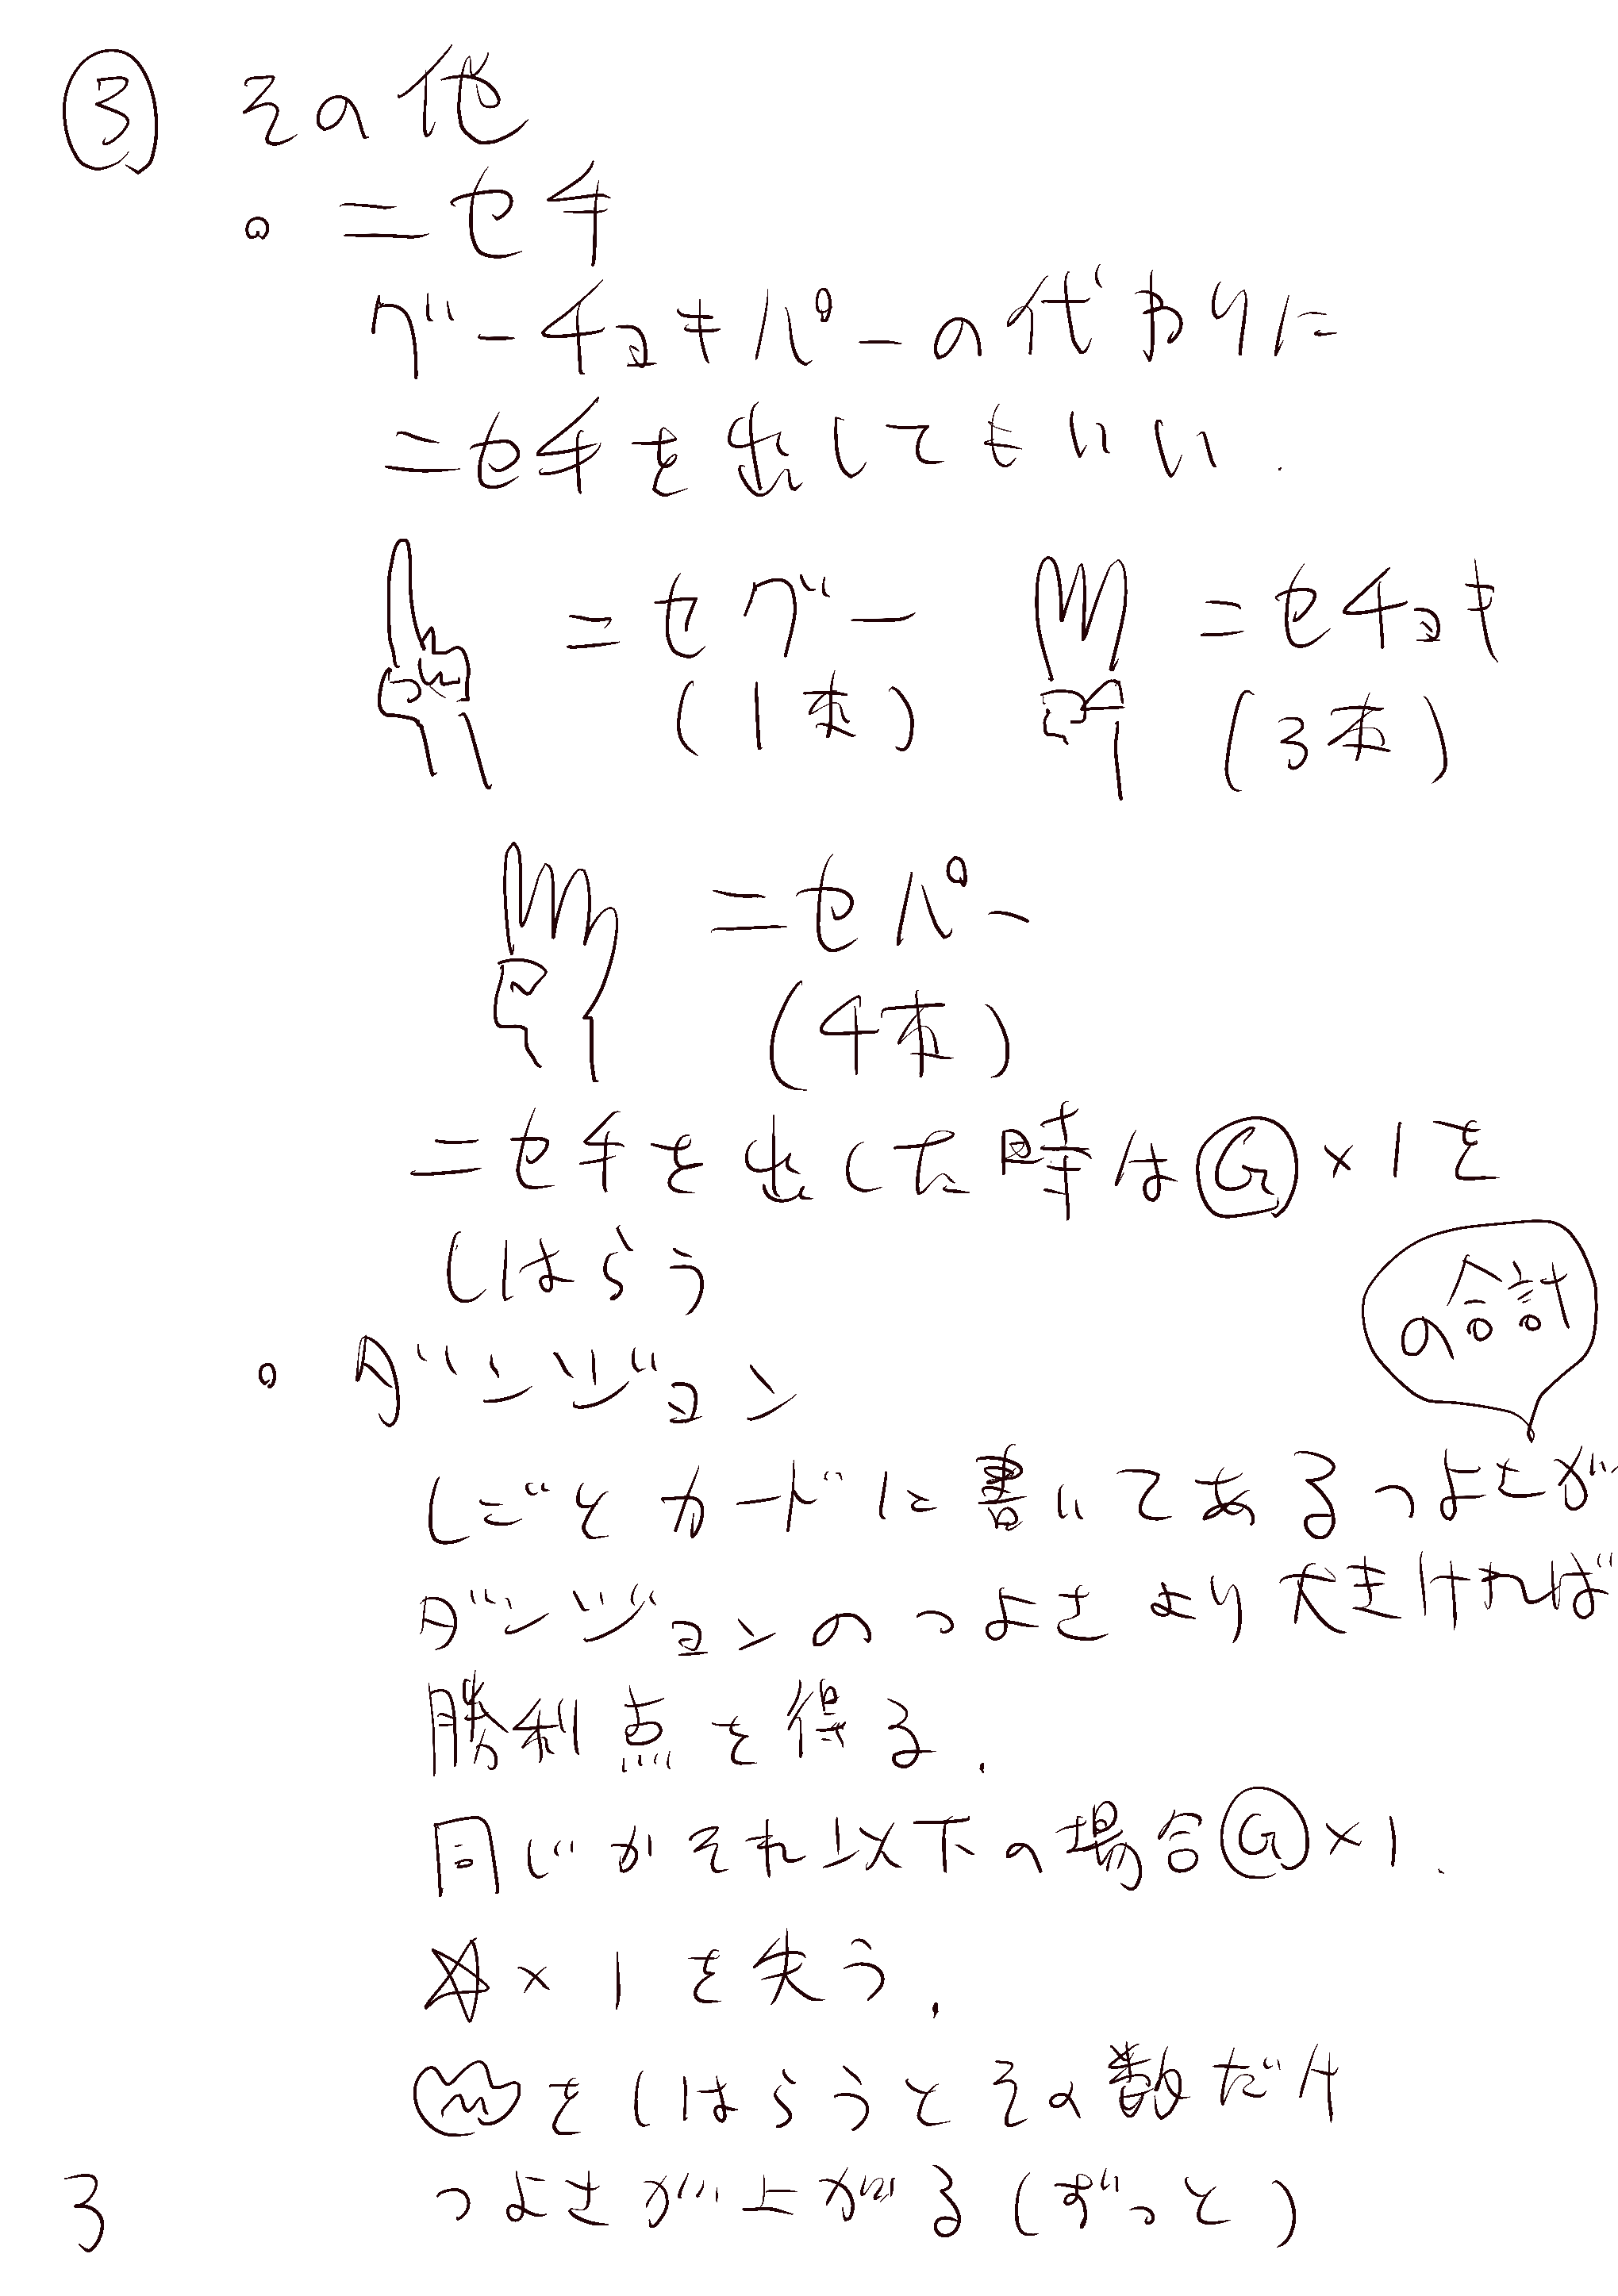 ③ その他
。ニセ手
グーチョキパーの代わりに
ニセ手を出してもいい.
ニセグー ニセチョキ
(1本) (3本)
ニセパー
(4本)
ニセ手を出した時はⒼ×1を
しはらう
の合計
。ダンジョン
しごとカードに書いてあるつよさが
ダンジョンのつよさより大きければ
勝利点を得る.
同じかそれ以下の場合Ⓖ×1.
☆×1を失う.
をしはらうとその数だけ
つよさが上がる(ずっと)
3